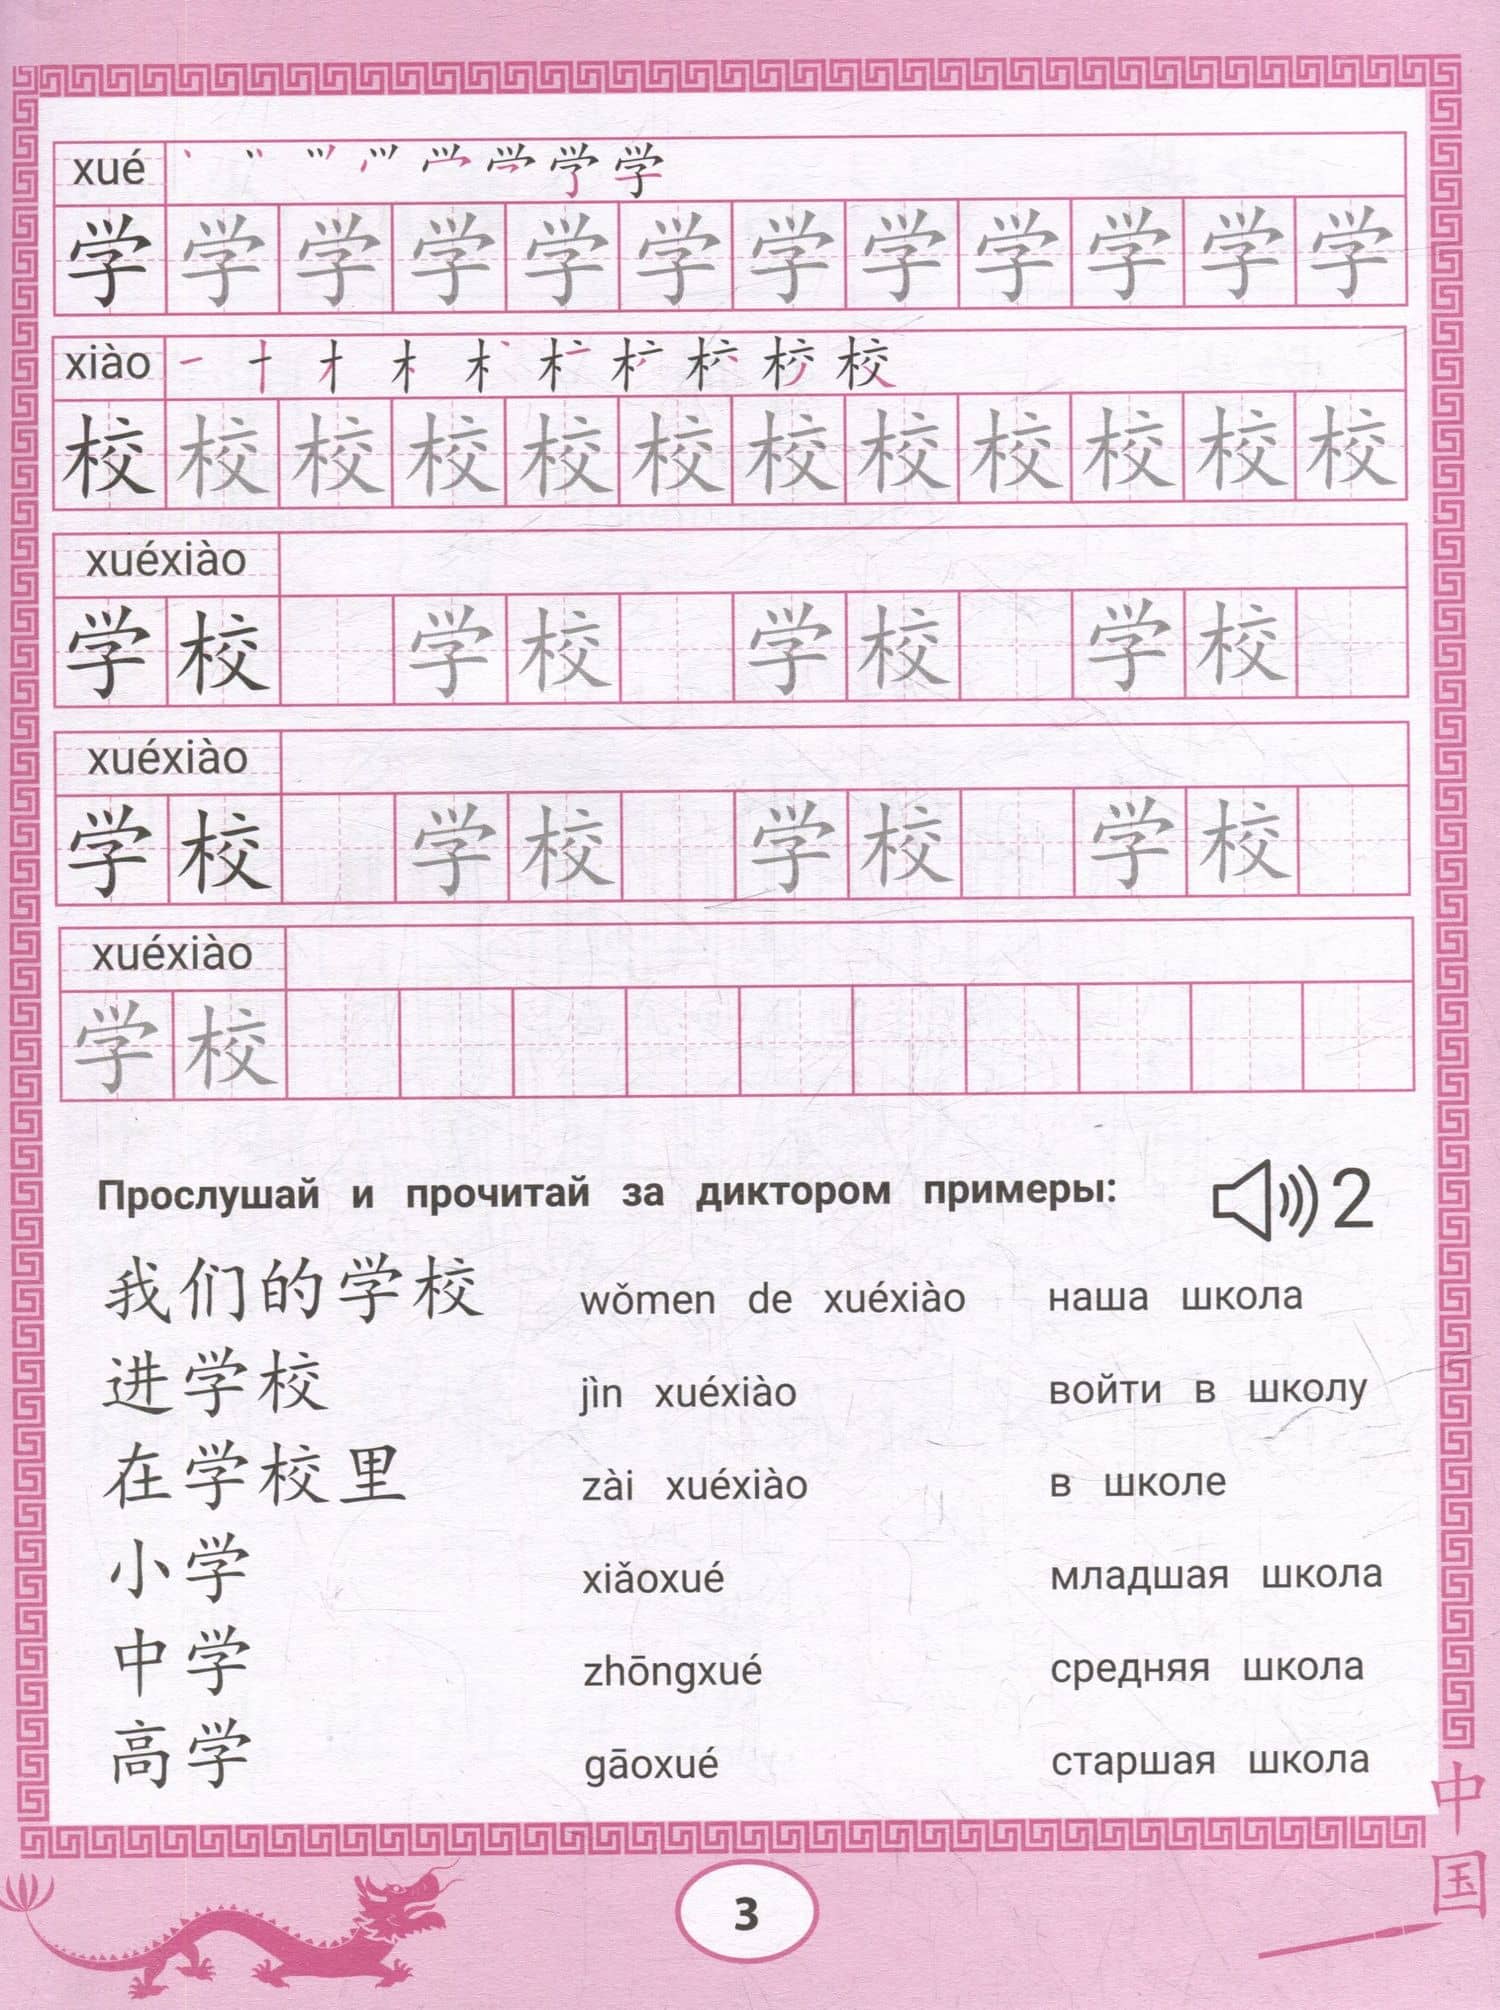 xué
学 学 学 学 学 学 学 学 学 学 学 学
xiào
校 校 校 校 校 校 校 校 校 校 校 校
xuéxiào
学 校 学 校 学 校 学 校
xuéxiào
学 校 学 校 学 校 学 校
xuéxiào
学 校
Прослушай и прочитай за диктором примеры: 2
我们的学校 wǒmen de xuéxiào наша школа
进学校 jìn xuéxiào войти в школу
在学校里 zài xuéxiào в школе
小学 xiǎoxué младшая школа
中学 zhōngxué средняя школа
高学 gāoxué старшая школа
中国
3